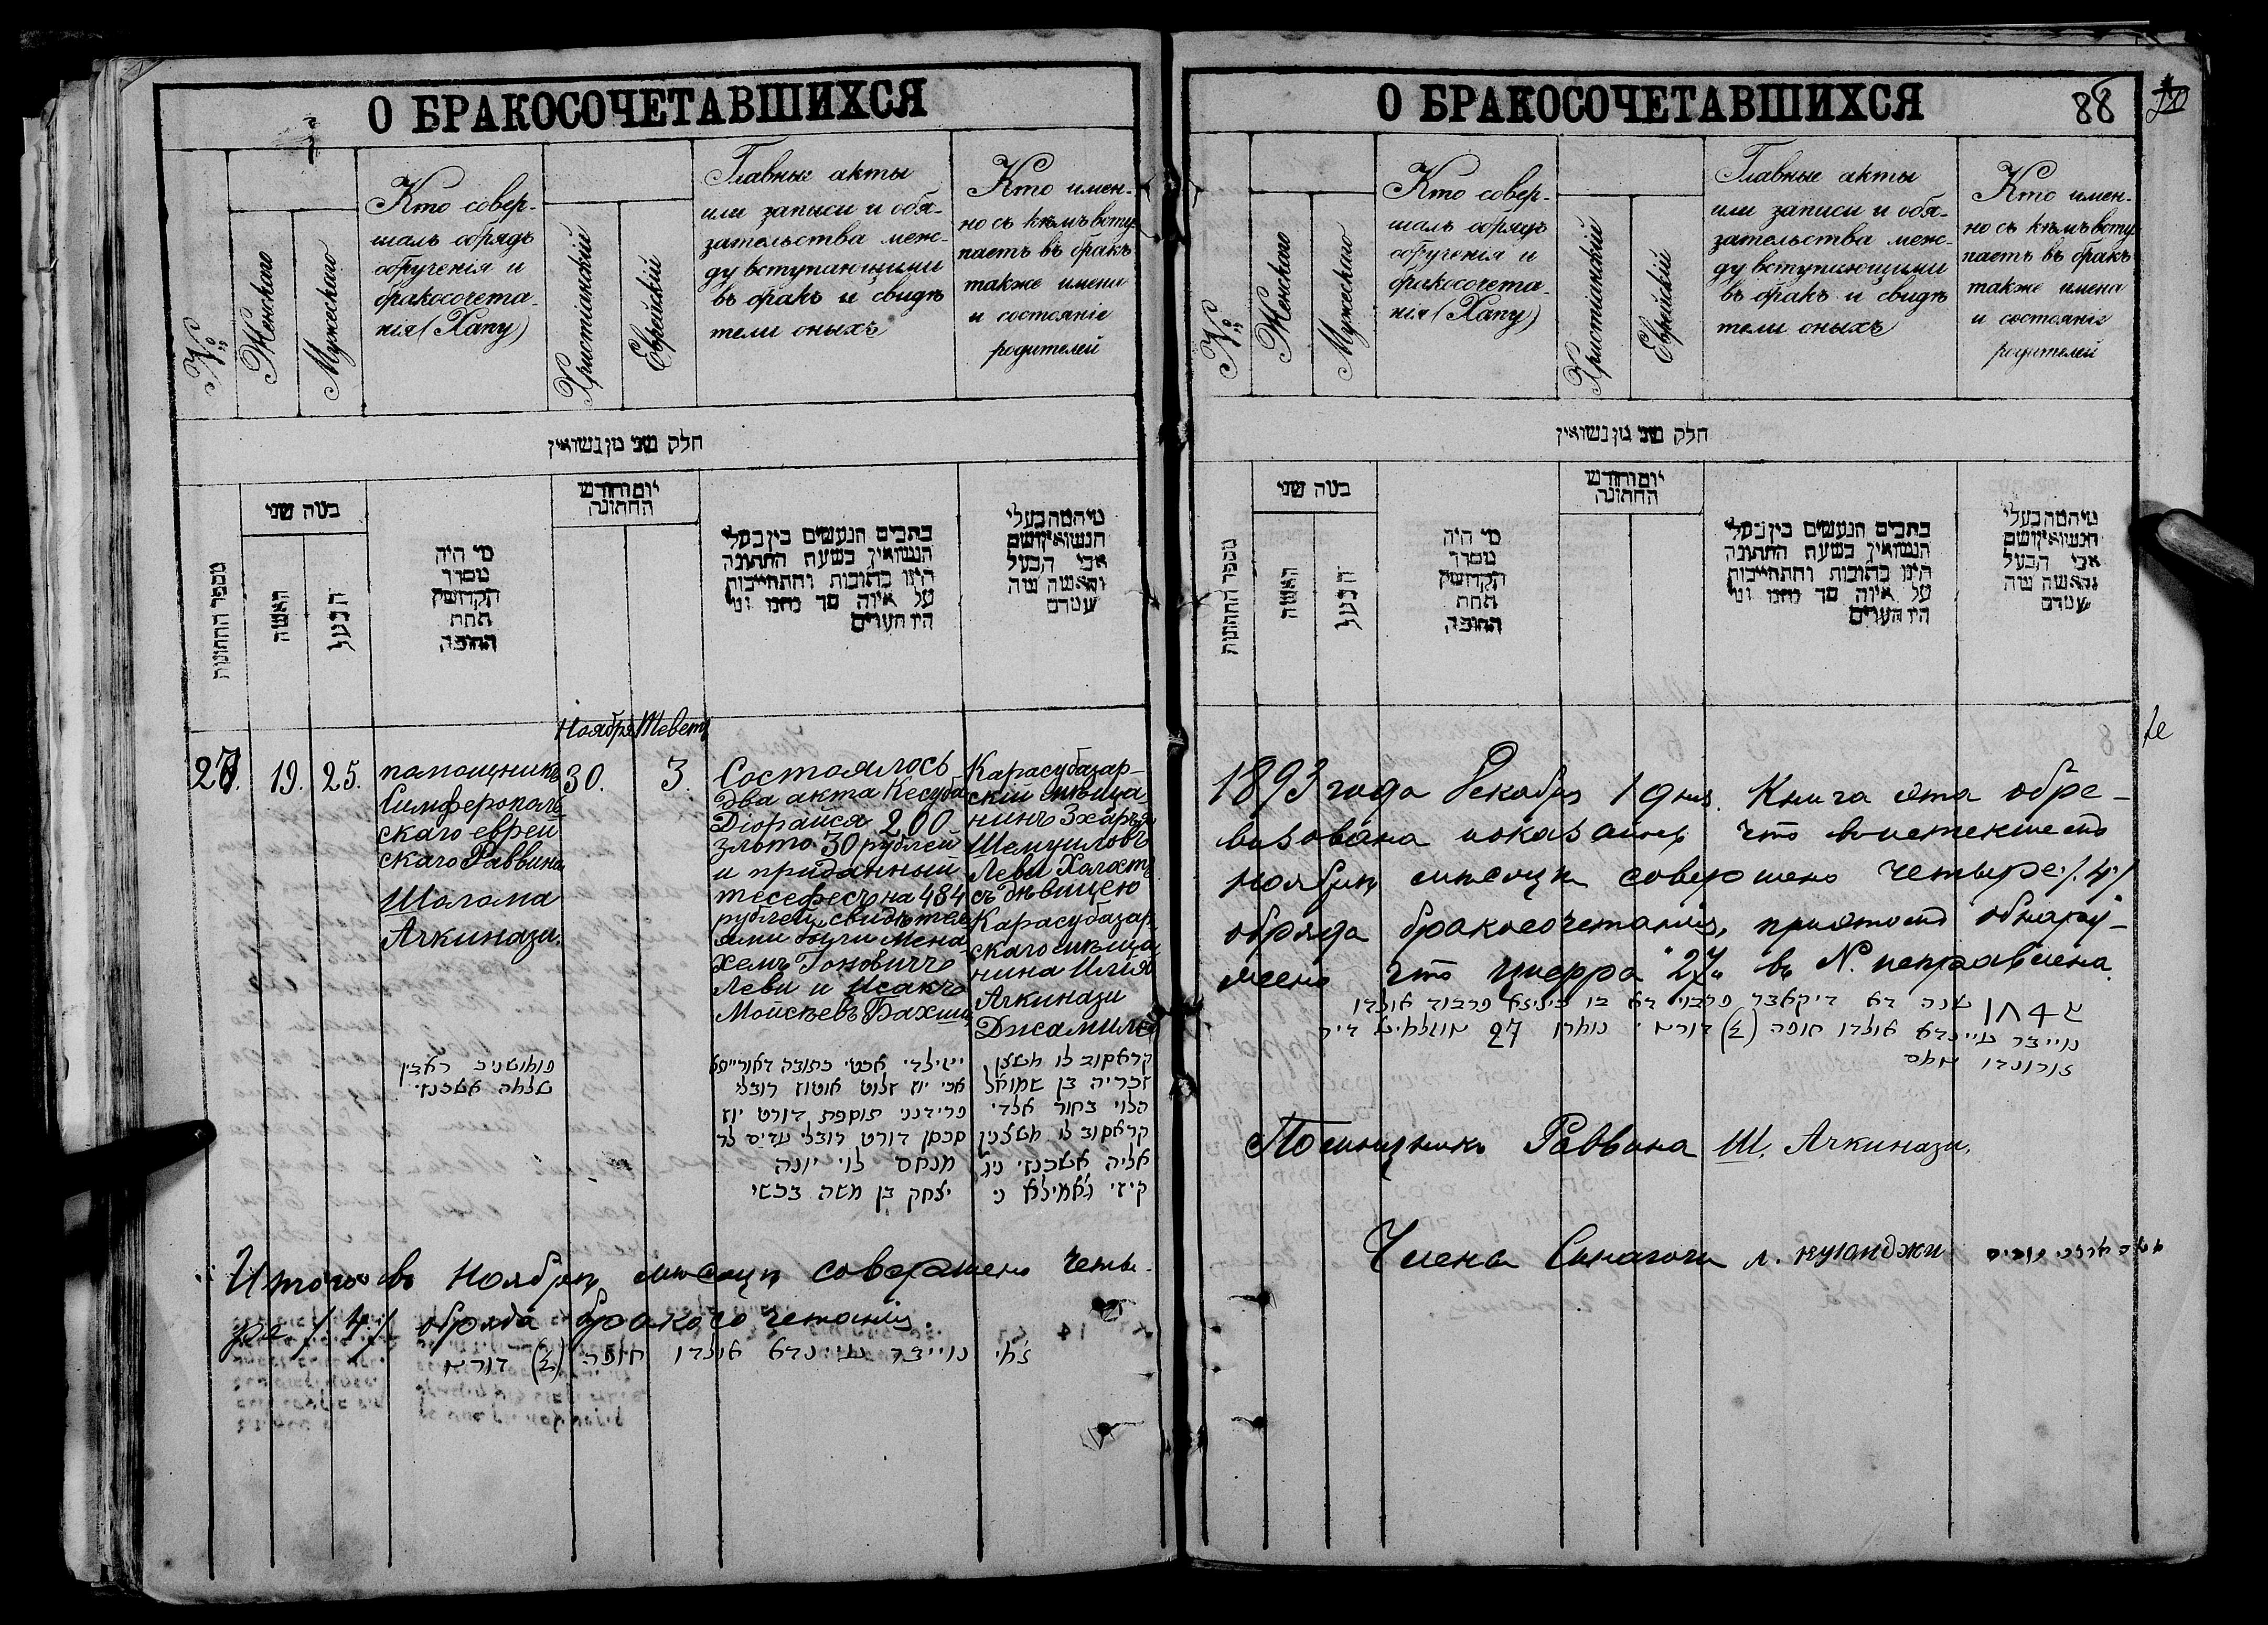 О БРАКОСОЧЕТАВШИХСЯ
№
Женскаго
Мужескаго
Кто совер-
шалъ обрядъ
обрученія и
бракосочета-
нія (Хапу)
Христіанскій
Еврейскій
Главные акты
или записи и обя-
зательства меж-
ду вступающими
въ бракъ и свидѣ
тели оныхъ
Кто имен-
но съ кѣмъ всту
паетъ въ бракъ
также имена
и состояніе
родителей
חלק שני מן נשואין
מספר החתונות
כמה שני
האשה
הבעל
מי היה
מסדר
הקדושין
תחת
החופה
יום וחודש
החתונה
כתבים הנעשים בין בעלי
הנשואין בשעת החתונה
היינו כתובות והתחייבות
על איזה סך נחמו ומי
היו העדים
מיהמה בעלי
הנשואין ושם
אבי הבעל
והאשה ומה
Ноября
Теветъ
27.
19.
25.
помощникъ
Симферополь
скаго еврей
скаго Раввина
Шолома
Ачкинази.
30.
3.
Состоялось
два акта Кесуба
Діорайся 200
злото 30 рублей
и приданный
тесефесъ на 484
рублей, свидѣтел
ями были Мена
хемъ Іоновичъ
Леви и Исакъ
Мойсѣевъ Бахши
Карасубазар-
скій мѣща
нинъ Зхарья
Шемуиловъ
Леви Холостъ
съ дѣвицею
Карасубазар
скаго мѣща
нина Илія
Ачкинази
Джамиле
ראבין
שלמה אשכנזי
ייזילדי אכטי כתובה דאורייתא
אכי יוז זלוט אוטוז רובלי
תוספת דורט יוז
סכסן דורט רובלי
מנחם לוי יונה
יצחק בן משה בכשי
זכריה בן שמואל
הלוי בחור
אליה אשכנזי
קיזי
Итого въ Ноябрѣ мѣсяцѣ совершено четы-
ре /4/ обряда бракосочетанія.
אולדו חופה (4) דורט
О БРАКОСОЧЕТАВШИХСЯ
88
№
Женскаго
Мужескаго
Кто совер-
шалъ обрядъ
обрученія и
бракосочета-
нія (Хапу)
Христіанскій
Еврейскій
Главные акты
или записи и обя-
зательства меж-
ду вступающими
въ бракъ и свидѣ
тели оныхъ
Кто имен-
но съ кѣмъ всту
паетъ въ бракъ
также имена
и состояніе
родителей
חלק שני מן נשואין
מספר החתונות
כמה שני
האשה
הבעל
מי היה
מסדר
הקדושין
תחת
החופה
יום וחודש
החתונה
כתבים הנעשים בין בעלי
הנשואין בשעת החתונה
היינו כתובות והתחייבות
על איזה סך נחמו ומי
היו העדים
מיהמה בעלי
הנשואין ושם
אבי הבעל
והאשה ומה
1893 года Декабря 1 дня. Книга эта обре-
визована показалось что въ истекшемъ
Ноябрѣ мѣсяцѣ совершено четыре /4/
обряда бракосочетанія, притомъ обнару-
жено что цифра "27" въ N. неправлена.
שנה דא דיקאבר
אולדו חופה (4) דורט 27
Помощникъ Раввина Ш. Ачкинази.
Члена Синагоги А. Куюнджи